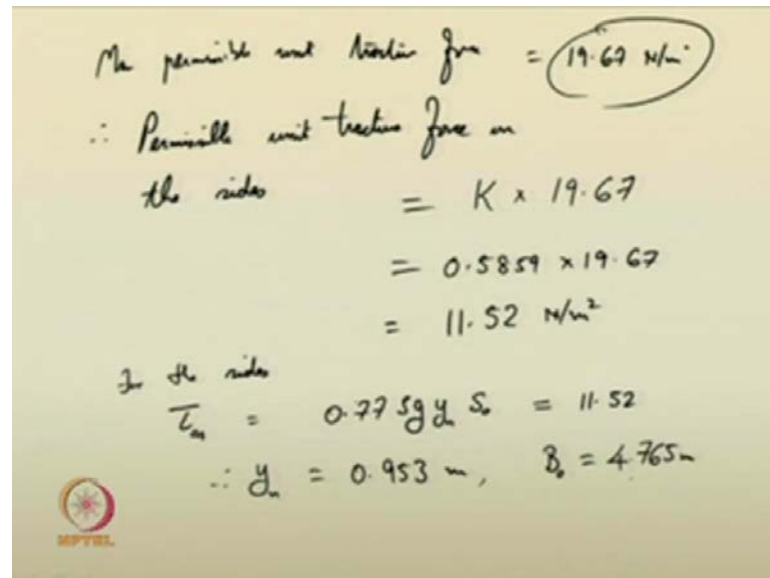 The permissible unit tractive force = 19.67 N/m²
∴ Permissible unit tractive force on
the sides = K x 19.67
= 0.5859 x 19.67
= 11.52 N/m²
For the sides
τ̄ₘ = 0.77 ρg yₙ S₀ = 11.52
∴ yₙ = 0.953 m, B₀ = 4.765m
NPTEL